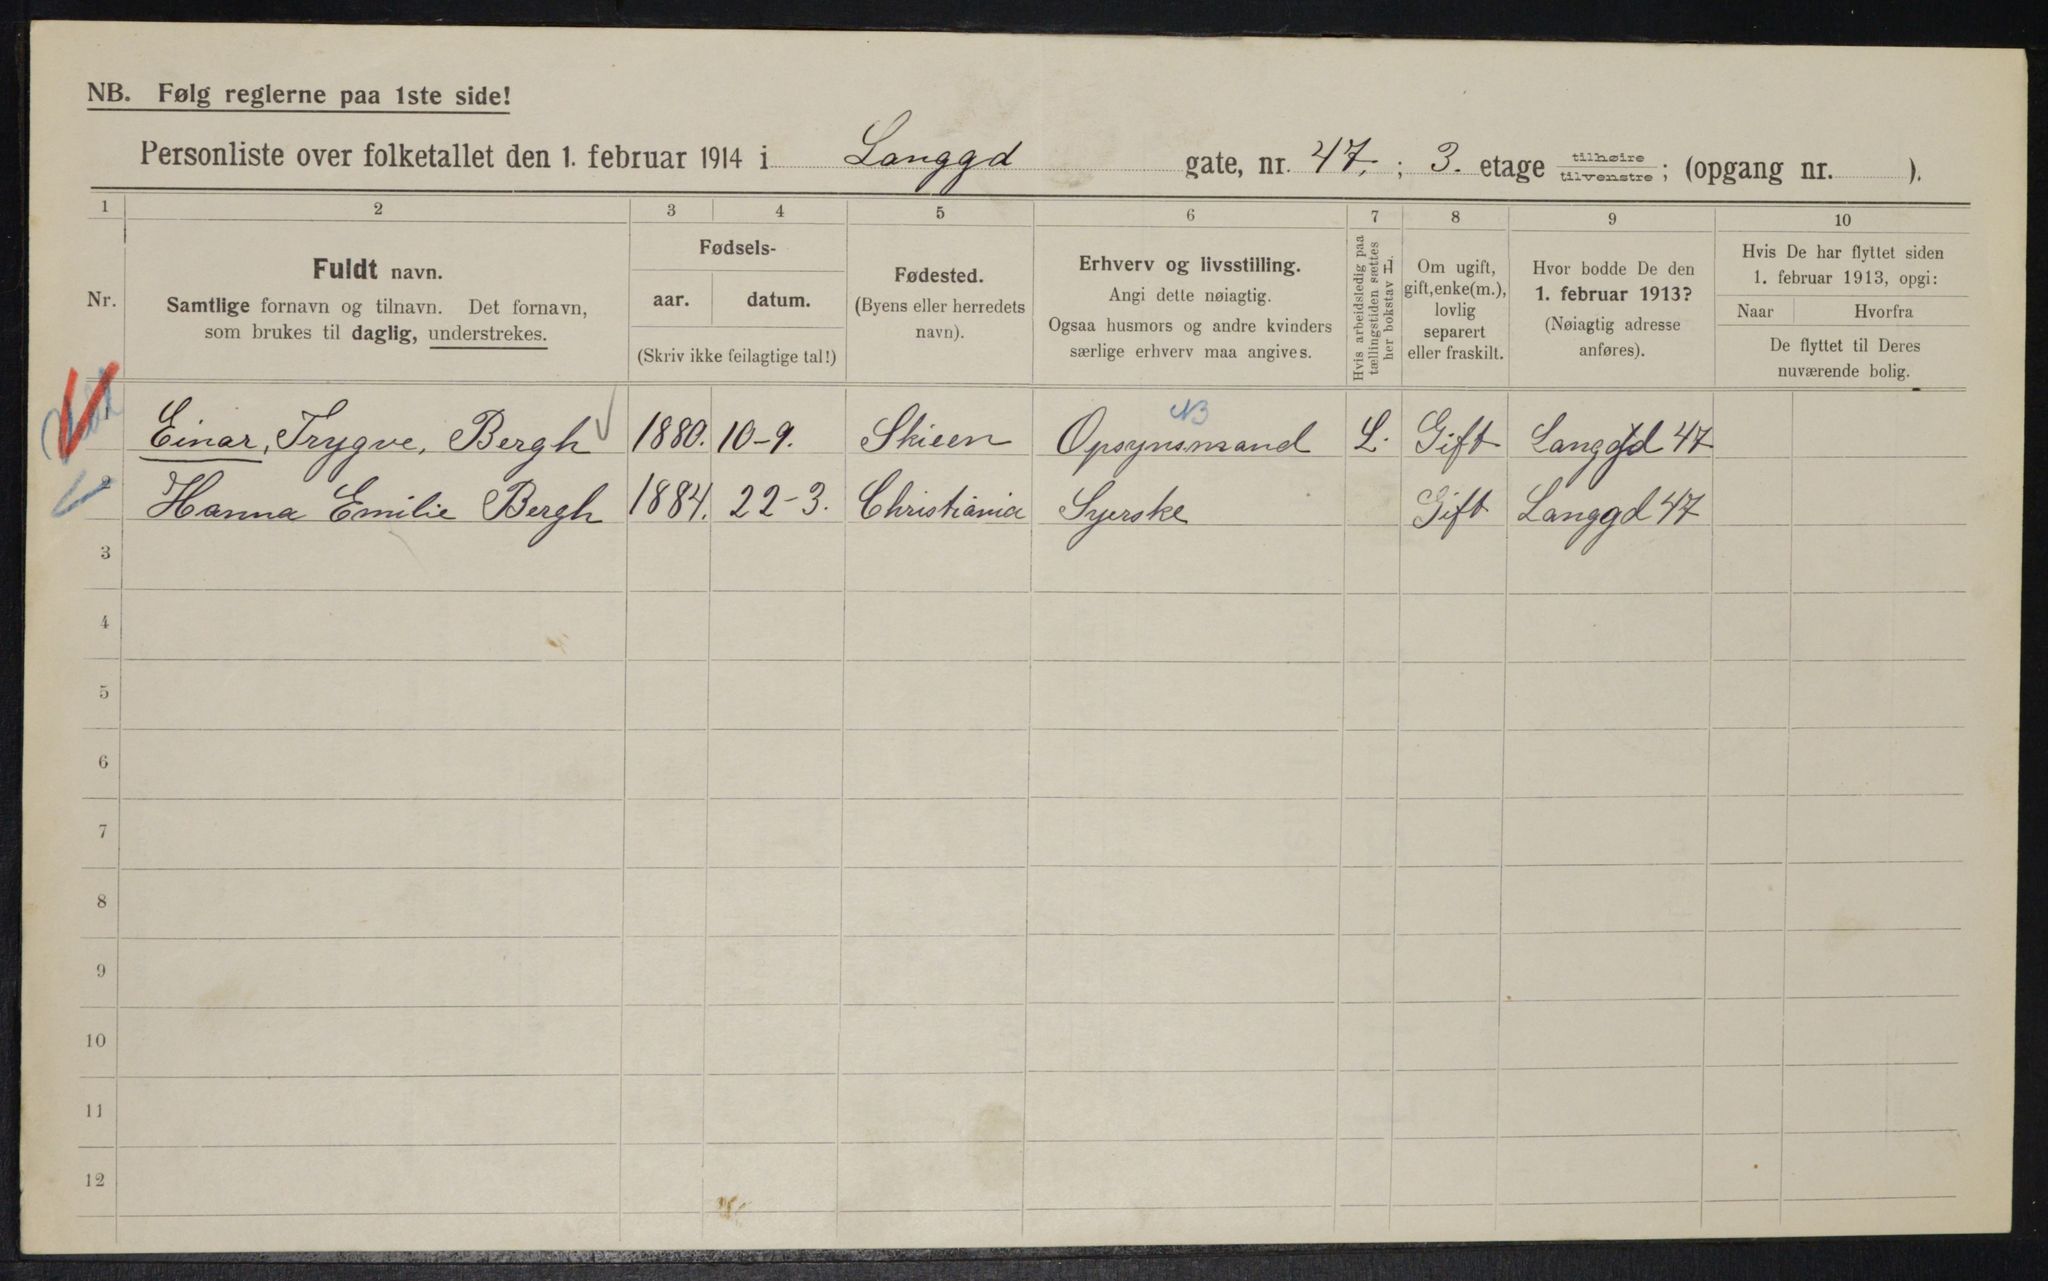 NB. Følg reglerne paa 1ste side!
Personliste over folketallet den 1. februar 1914 i Langgd gate, nr. 47.; 3. etage tilhøire tilvenstre; (opgang nr. ).
1 2 3 4 5 6 7 8 9 10
Nr.
Fuldt navn.
Samtlige fornavn og tilnavn. Det fornavn,
som brukes til daglig, understrekes.
Fødsels-
aar. datum.
(Skriv ikke feilagtige tal!)
Fødested.
(Byens eller herredets
navn).
Erhverv og livsstilling.
Angi dette nøiagtig.
Ogsaa husmors og andre kvinders
særlige erhverv maa angives.
Hvis arbeidsledig paa
tællingstiden sættes
her bokstav L.
Om ugift,
gift, enke(m.),
lovlig
separert
eller fraskilt.
Hvor bodde De den
1. februar 1913?
(Nøiagtig adresse
anføres).
Hvis De har flyttet siden
1. februar 1913, opgi:
Naar Hvorfra
De flyttet til Deres
nuværende bolig.
NB
1 Einar, Trygve, Bergh 1880. 10-9. Skieen Opsynsmand L. Gift Langgd 47
2 Hanna Emilie Bergh 1884. 22-3. Christiania Syerske Gift Langgd 47
3
4
5
6
7
8
9
10
11
12